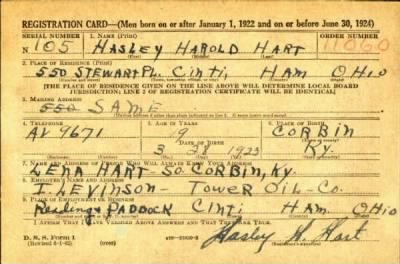 REGISTRATION CARD—(Men born on or after January 1, 1922 and on or before June 30, 1924)
SERIAL NUMBER 1. NAME (Print) ORDER NUMBER
N 105 HASLEY HAROLD HART 11060
(First) (Middle) (Last)
2. PLACE OF RESIDENCE (Print)
550 STEWART PL. CINTI, HAM OHIO
(Number and street) (Town, township, village, or city) (County) (State)
[THE PLACE OF RESIDENCE GIVEN ON THE LINE ABOVE WILL DETERMINE LOCAL BOARD
JURISDICTION; LINE 2 OF REGISTRATION CERTIFICATE WILL BE IDENTICAL]
3. MAILING ADDRESS
550 SAME
[Mailing address if other than place indicated on line 2. If same insert word same]
4. TELEPHONE 5. AGE IN YEARS 6. PLACE OF BIRTH
AV 9671 19 CORBIN
DATE OF BIRTH
3 28 1923 KY.
(Exchange) (Number) (Mo.) (Day) (Yr.) (State or country)
7. NAME AND ADDRESS OF PERSON WHO WILL ALWAYS KNOW YOUR ADDRESS
LENA HART - SO. CORBIN, KY.
8. EMPLOYER'S NAME AND ADDRESS
I. LEVINSON - TOWER OIL - CO.
9. PLACE OF EMPLOYMENT OR BUSINESS
PADDOCK CINTI HAM. OHIO
(Number and street or R. F. D. number) (Town) (County) (State)
I AFFIRM THAT I HAVE VERIFIED ABOVE ANSWERS AND THAT THEY ARE TRUE.
D. S. S. Form 1
(over)
Hasley H. Hart
(Registrant's signature)